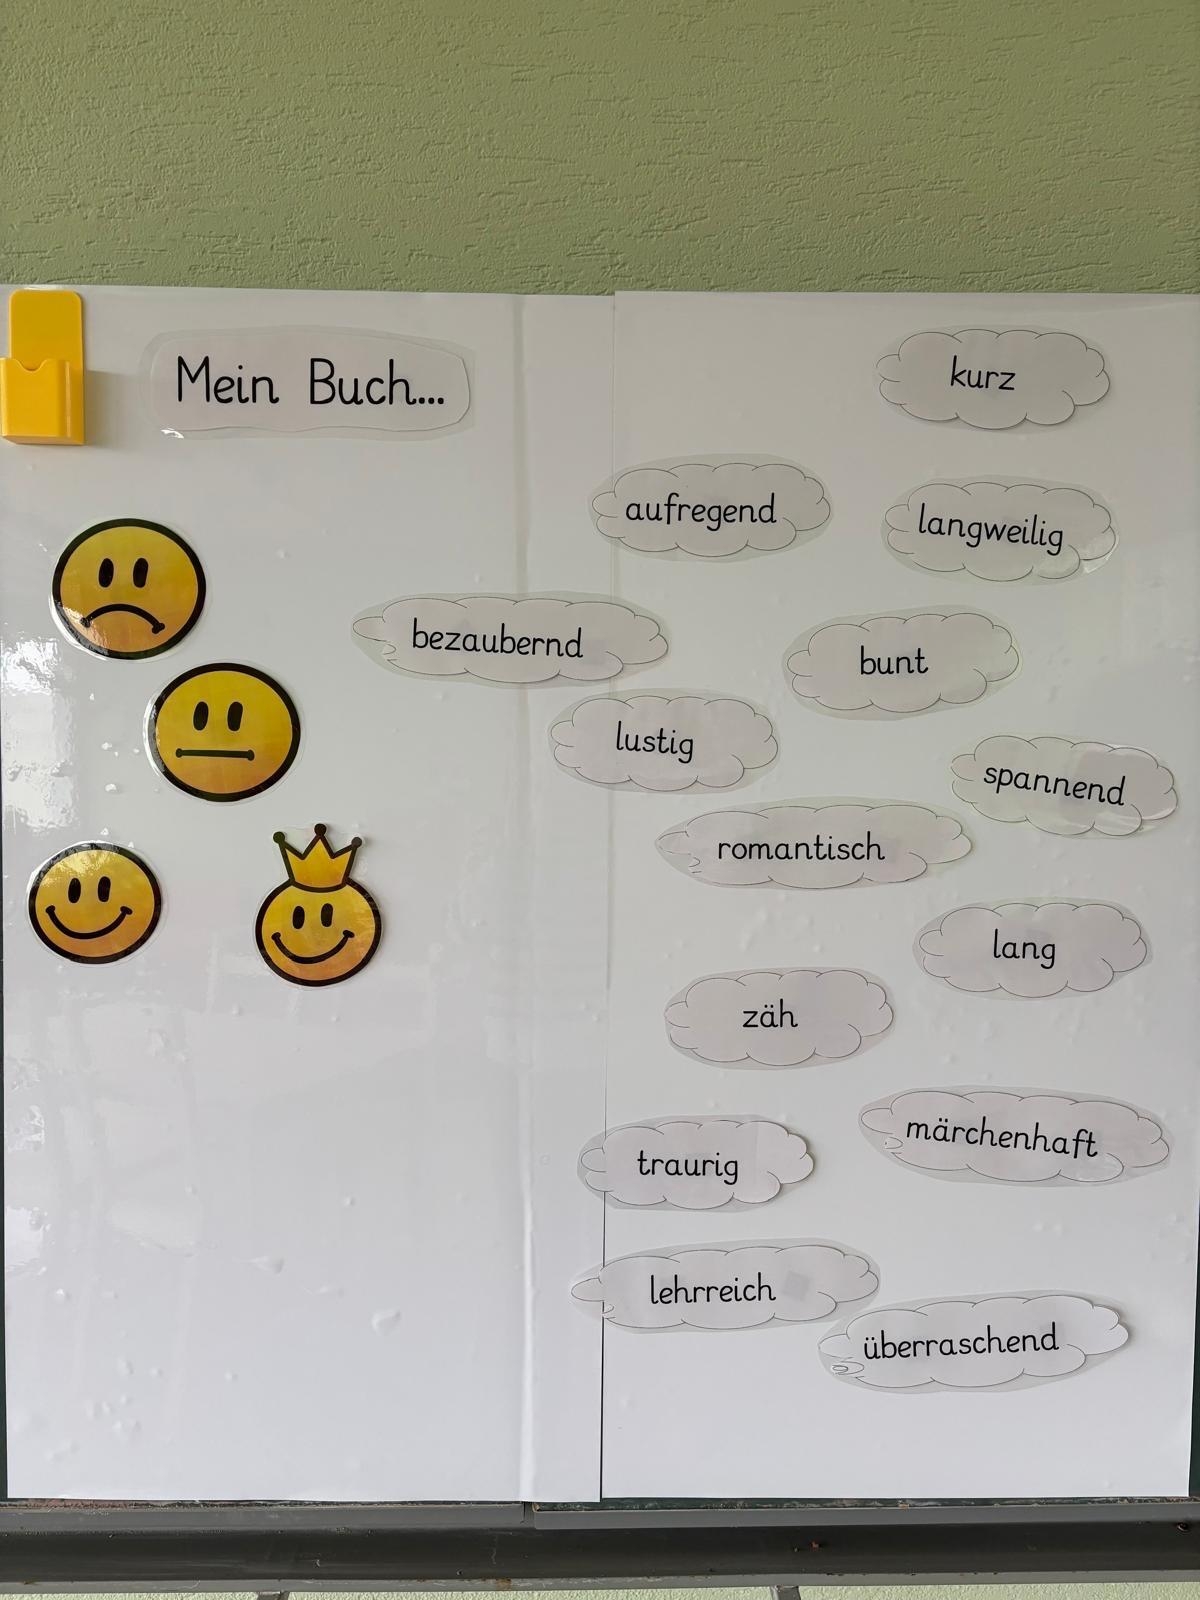 Mein Buch...
kurz
aufregend
langweilig
bezaubernd
bunt
lustig
spannend
romantisch
lang
zäh
märchenhaft
traurig
lehrreich
überraschend